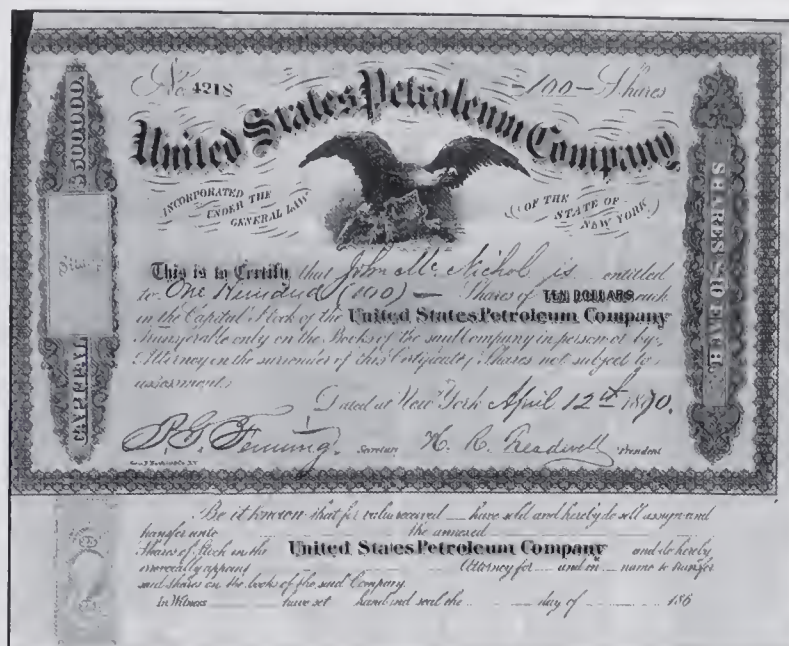 No. 4218 — 100 — Shares
United States Petroleum Company
INCORPORATED UNDER THE GENERAL LAW
OF THE STATE OF NEW YORK
This is to Certify that John Mc Nichol is entitled
to One Hundred (100) — Shares of TEN DOLLARS each
in the Capital Stock of the United States Petroleum Company
transferable only on the Books of the said Company in person or by
Attorney on the surrender of this Certificate, Shares not subject to
assessment,
Dated at New York April 12th 1870.
Secretary President
CAPITAL
Stamp
SHARES
Be it known that for value received have sold and hereby do sell assign and
transfer unto the annexed
Shares of Stock in the United States Petroleum Company and do hereby
irrevocably appoint Attorney for and in name to transfer
said shares on the books of the said Company
In Witness have set hand and seal the day of 186